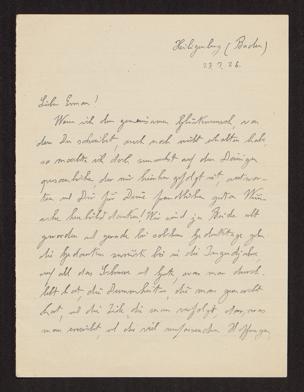 Heiligenberg (Baden)
23.7.26.
Lieber Erman!
Wenn ich den gemeinsamen Glückwunsch, von
dem Du schreibst, auch noch nicht erhalten habe,
so möchte ich doch zunächst auf den Deinigen
der mir hierher gefolgt ist, antwor-
ten und Dir für Deine freundlichen guten Wün-
sche herzlichst danken! Wir sind ja Beide alt
geworden und gerade bei solchen gehn
die Gedanken zurück bis in die Jugendjahre,
auf all das Schwere und Gute, was man durch-
lebt hat, die Dummheiten, die man gemacht
hat, und die Ziele, die man verfolgt, das, was
man erreicht und die viel Hoffnungen,